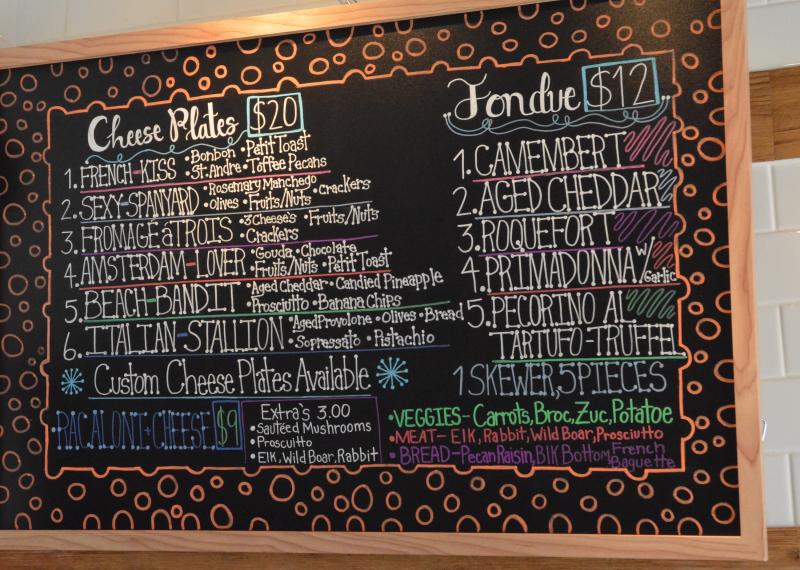 Cheese Plates $20
1. FRENCH-KISS •Bonbon •Petit Toast
•St. Andre •Toffee Pecans
2. SEXY-SPANYARD •Rosemary Manchego •crackers
•Olives •Fruits/Nuts
3. FROMAGE á TROIS •3 Cheeses •Fruits/Nuts
•Crackers
4. AMSTERDAM-LOVER •Gouda •Chocolate
•Fruits/Nuts •Petit Toast
5. BEACH-BANDIT •Aged Cheddar •Candied Pineapple
•Prosciutto •Banana Chips
6. ITALIAN-STALLION •Aged Provolone •Olives •Bread
•Sopressato •Pistachio
Custom Cheese Plates Available
•RACALONI+CHEESE $9
Extra's 3.00
•Sautéed Mushrooms
•Proscuitto
•Elk, Wild Boar, Rabbit
Fondue $12
1. CAMEMBERT
2. AGED CHEDDAR
3. ROQUEFORT
4. PRIMADONNA w/ Garlic
5. PECORINO AL
TARTUFO-TRUFFEL
1 SKEWER, 5 PIECES
•VEGGIES- Carrots, Broc, Zuc, Potatoe
•MEAT- Elk, Rabbit, Wild Boar, Prosciutto
•BREAD- Pecan Raisin, Blk Bottom, French
Baguette